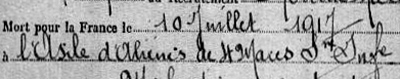 Mort pour la France le 10 Juillet 1917
à l'Asile d'Aliénés de St Maces Infe